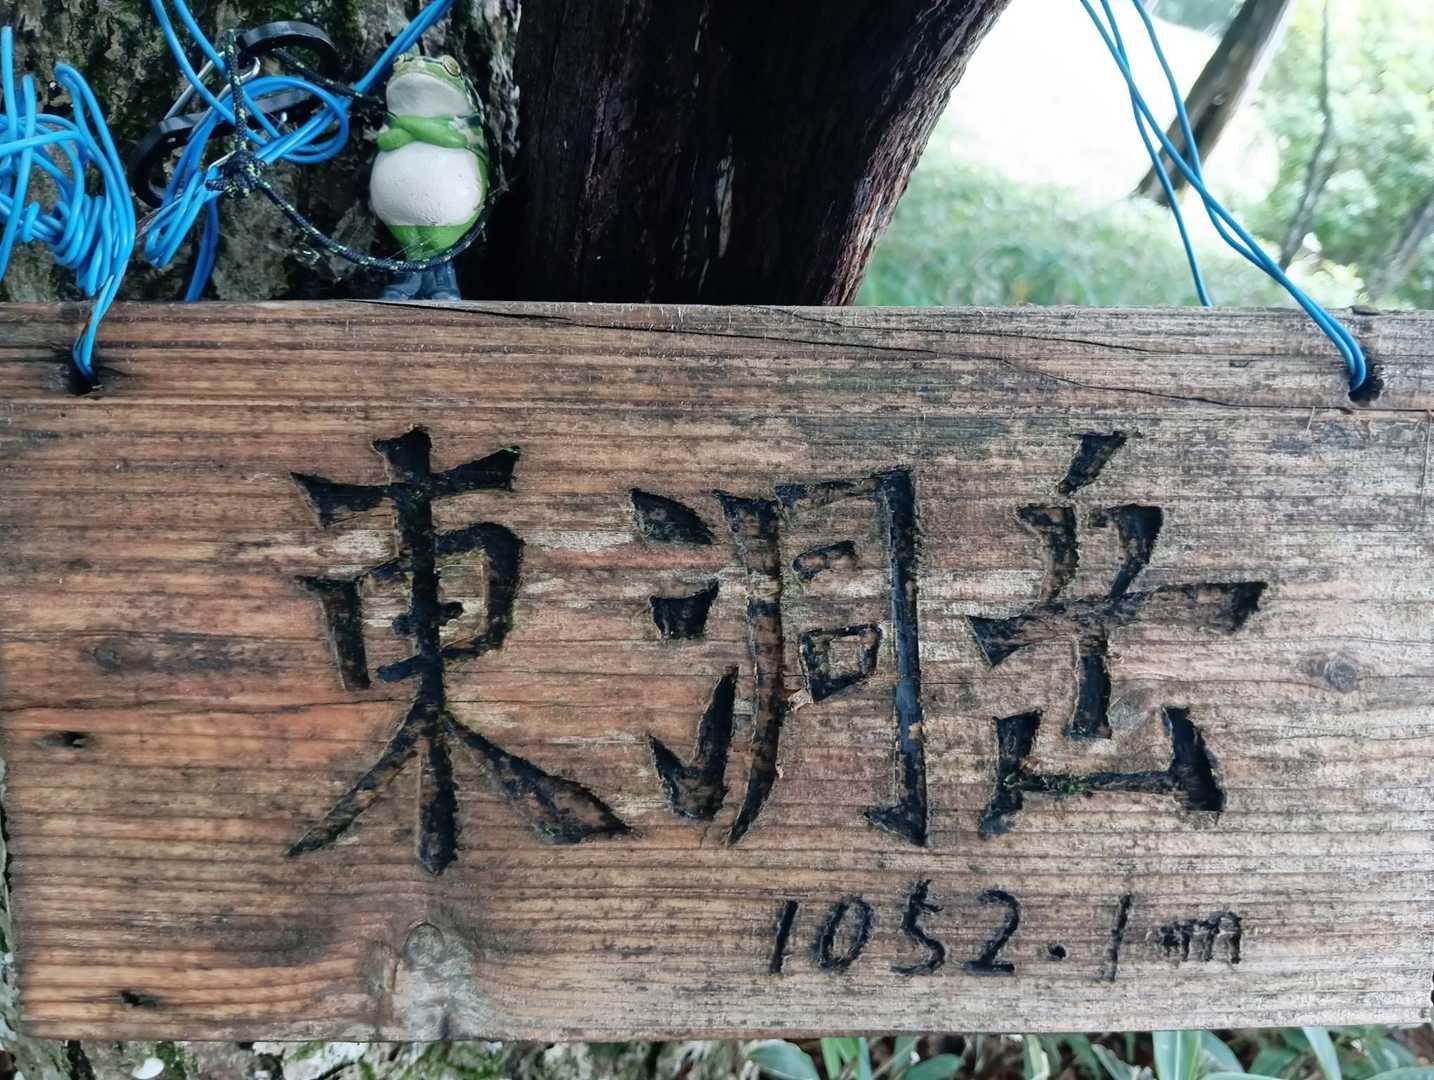 東洞岳
1052.1m